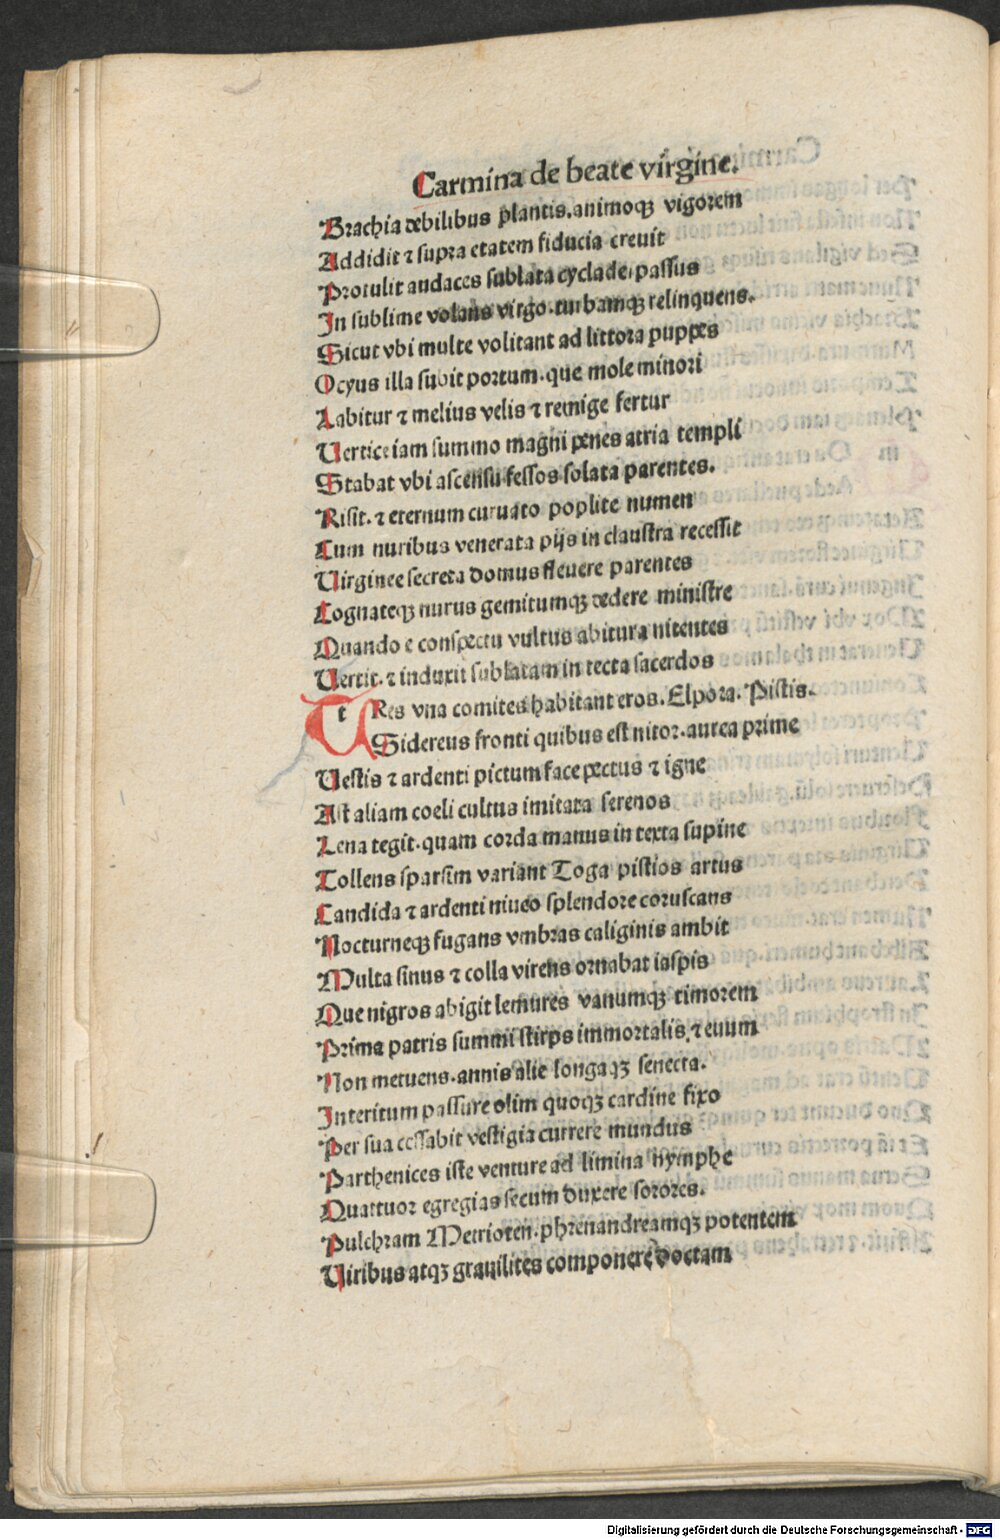 Carmina de beate virgine.
Brachia debilibus plantis.animoqꝫ vigorem
Addidit ⁊ supra etatem fiducia creuit
Protulit audaces sublata cyclade.passus
In sublime volans virgo.turbamqꝫ relinquens.
Sicut vbi multe volitant ad littora puppes
Ocyus illa subit portum.que mole minori
Labitur ⁊ melius velis ⁊ remige fertur
Uertice iam summo magni penes atria templi
Stabat vbi ascensu fessos solata parentes.
Risit.⁊ eternum curuato poplite numen
Cum nuribus venerata pijs in claustra recessit
Uirginee secreta domus fleuere parentes
Cognateqꝫ nurus gemitumqꝫ dedere ministre
Quando e conspectu vultus abitura nitentes
Uertit.⁊ induxit sublatam in tecta sacerdos
tRes vna comites habitant eros.Elpora.Pistis.
Sidereus fronti quibus est nitor.aurea prime
Uestis ⁊ ardenti pictum face pectus ⁊ igne
Ast aliam coeli cultus imitata serenos
Lena tegit.quam corda manus in texta supine
Tollens sparsim variant Toga pistios artus
Candida ⁊ ardenti niueo splendore coruscans
Nocturneqꝫ fugans vmbras caliginis ambit
Multa sinus ⁊ colla virens ornabat iaspis
Que nigros abigit lemures vanumqꝫ timorem
Prima patris summi stirps immortalis.⁊ euum
Non metuens.annis alie longaqꝫ senecta.
Interitum passure olim quoqꝫ cardine fixo
Per sua cessabit vestigia currere mundus
Parthenices iste venture ad limina nymphe
Quattuor egregias secum duxere sorores.
Pulchram Metrioten.phrenandreamqꝫ potentem
Uiribus atqꝫ grauilites componere doctam
Digitalisierung gefördert durch die Deutsche Forschungsgemeinschaft - DFG